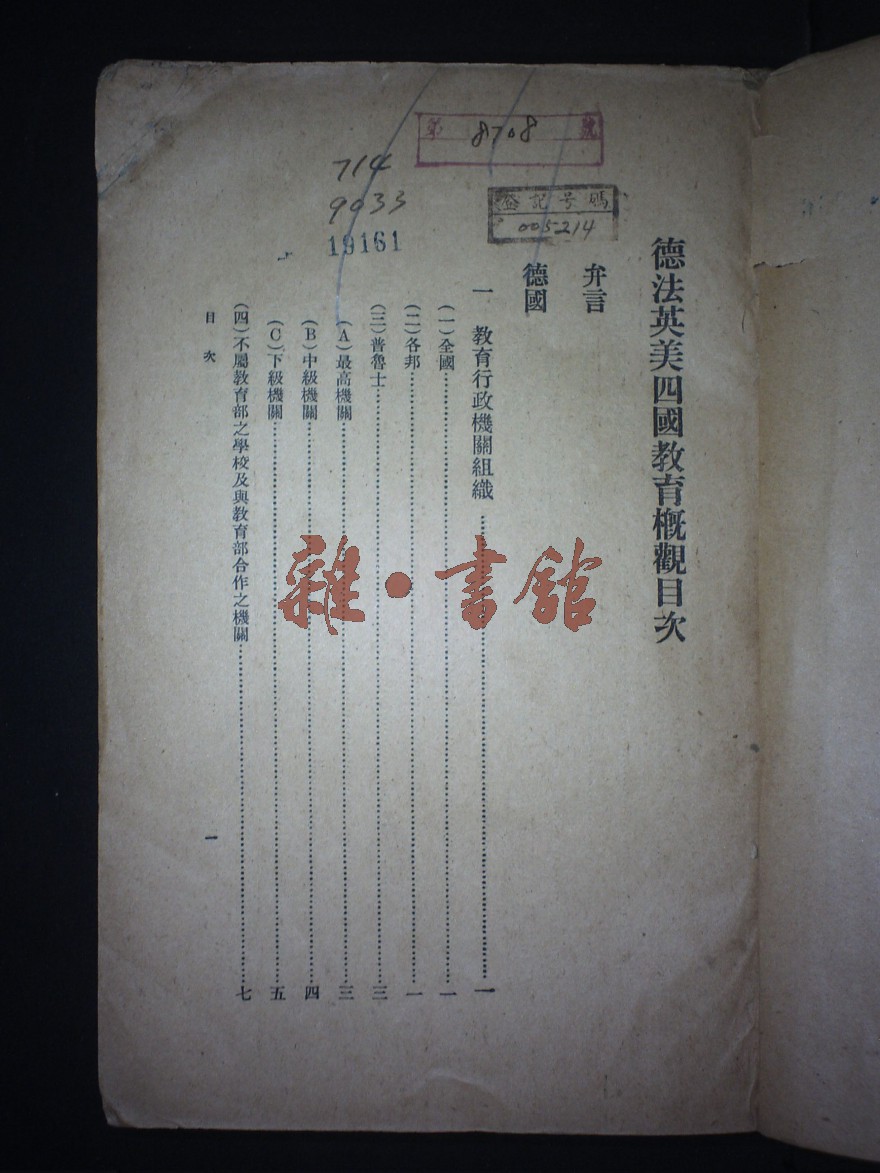 第 8708 號
714
9033
19161
登記号碼
005214
德法英美四國教育概觀目次
弁言
德國
一 教育行政機關組織……一
(一)全國……一
(二)各邦……一
(三)普魯士……三
(A)最高機關……三
(B)中級機關……四
(C)下級機關……五
(四)不屬教育部之學校及與教育部合作之機關……七
目次 一
雜·書館